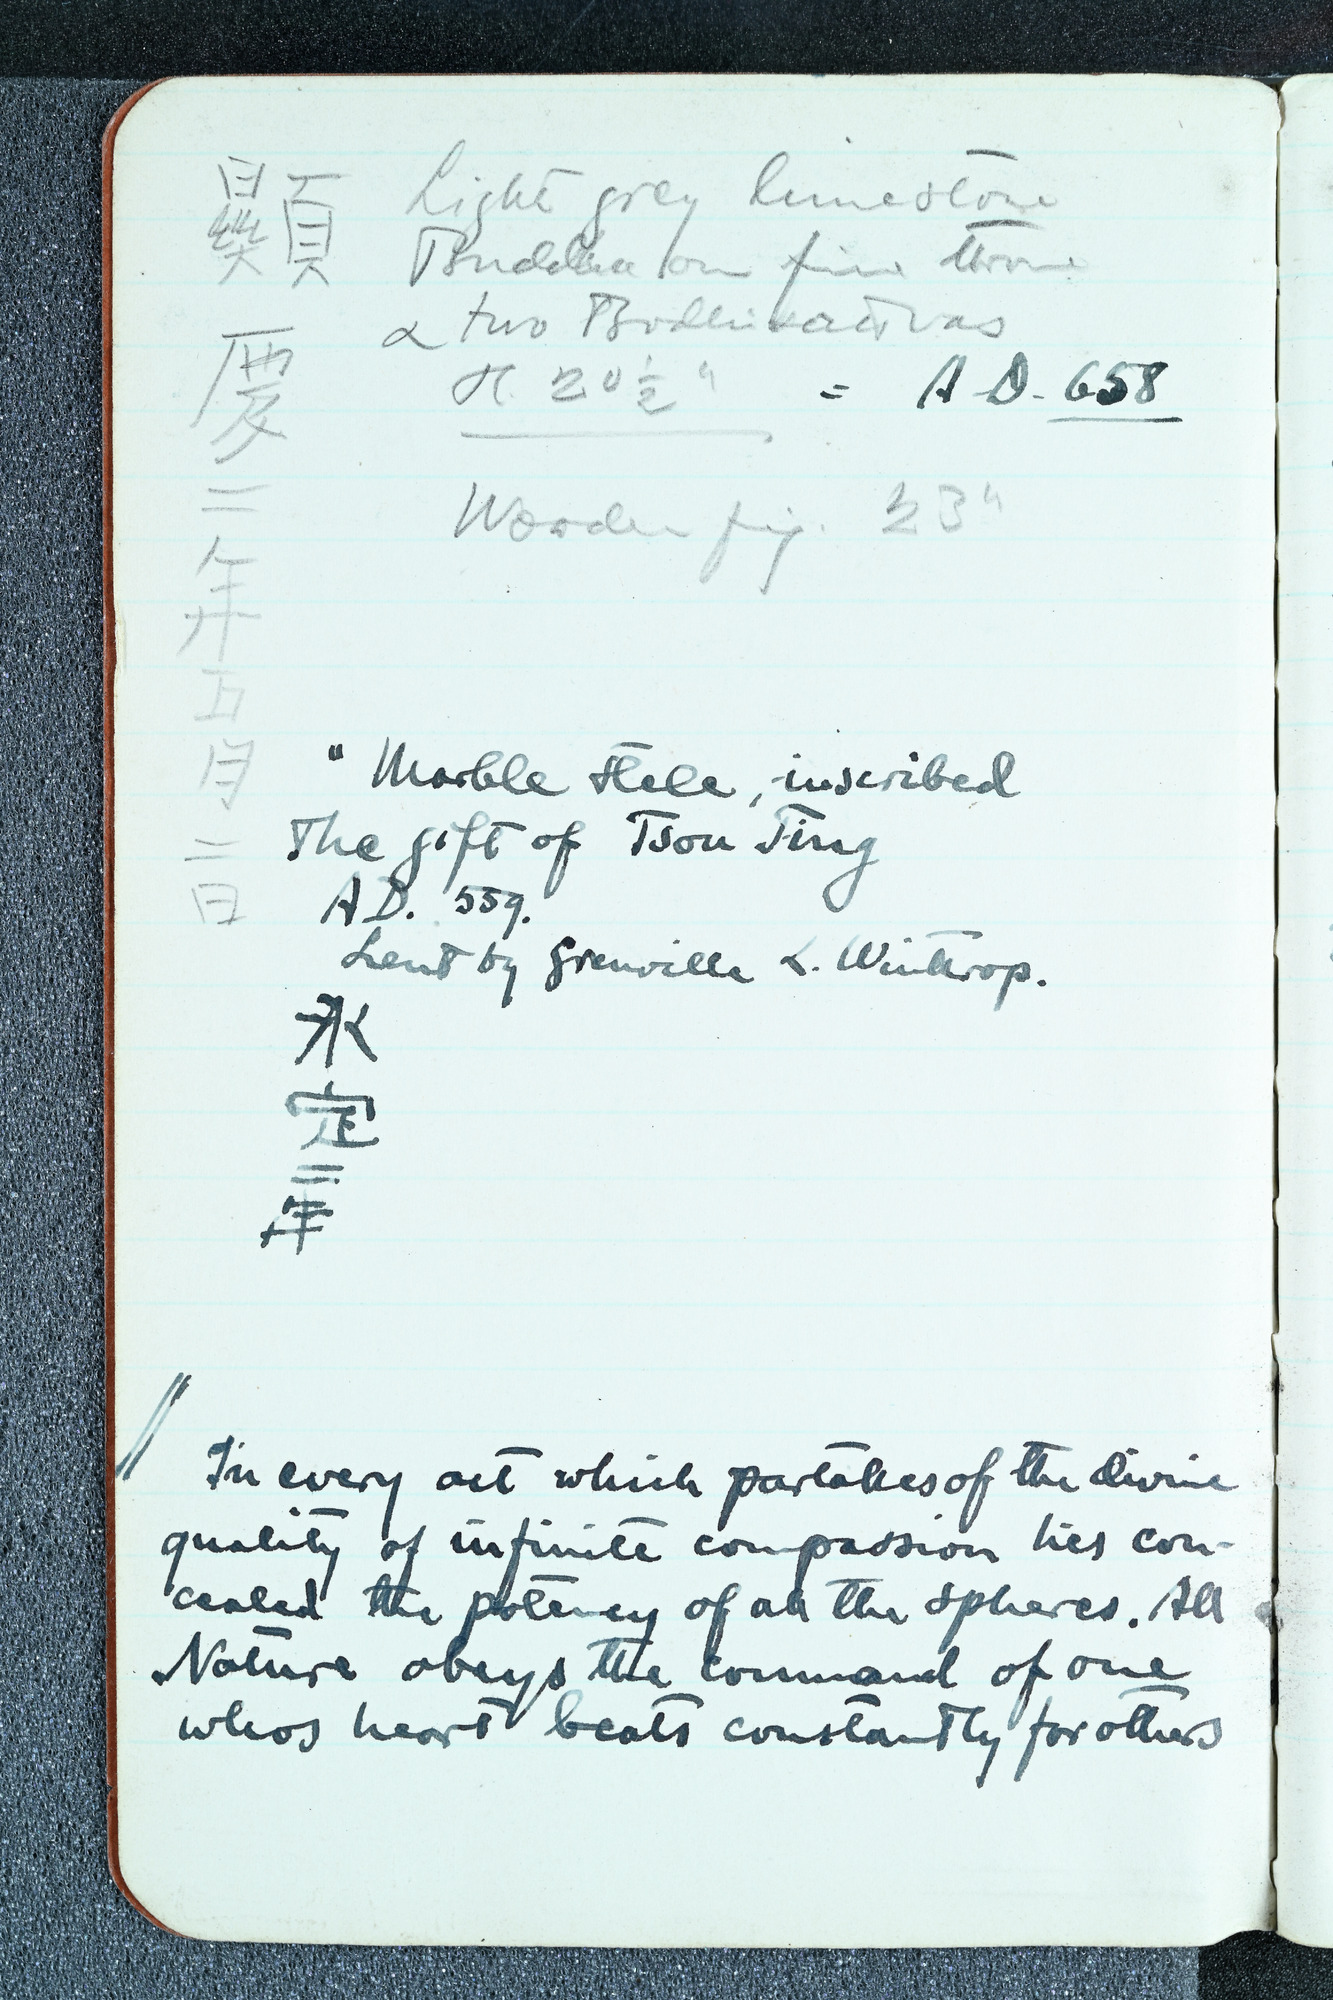 顯慶二年五月二日
Light grey limestone
Buddha on fine throne
& two Bodhisattvas
H. 20 ½ "
= A.D. 658
Wooden fig. 23"
" Marble stele, inscribed
The gift of Tsou Ting
AD. 559.
Lent by Grenville L. Winthrop.
永定三年
In every act which partakes of the divine
quality of infinite compassion lies con-
cealed the potency of all the spheres. All
Nature obeys the command of one
whos heart beats constantly for others